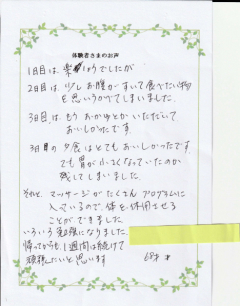 体験者さまのお声
1日目は、楽しょうでしたが
2日目は、少しお腹がすいて食べたい物
を思いうかべてしまいました。
3日目は、もうおかゆとかいただいて
おいしかったです
3日目の夕食はとてもおいしかったです
でも胃が小さくなっていたのか
残してしまいました。
それと、マッサージがたくさんプログラムに
入っているので、体を休用させる
ことができました。
いろいろ勉強になりました。
帰ってからも1週間は続けて
頑張りたいと思います
68才